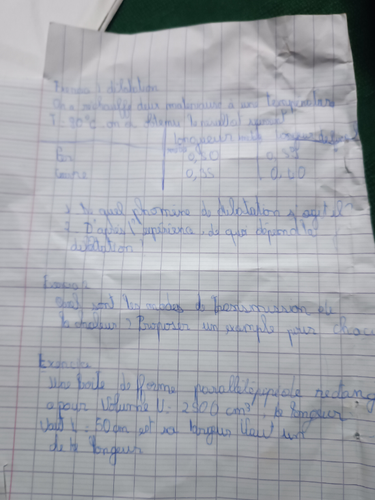 dilatation
On a réchauffé deux matériaux à une température
T = 90°C on a obtenu le résultat suivant
longueur
Fer 0,50 0,55
cuivre 0,55 0,60
1 De quel phénomène de dilatation s'agit il
2 D'après l'expérience, de quoi dépend la
dilatation
Exercice
Quel sont les modes de transmission de
la chaleur? Proposer un exemple pour chac
Exercice
une boite de forme parallélépipède rectang
a pour Volume V: 2500 cm³, la longueur
Vaut L: 50cm et sa largeur Vaut un
de la longueur